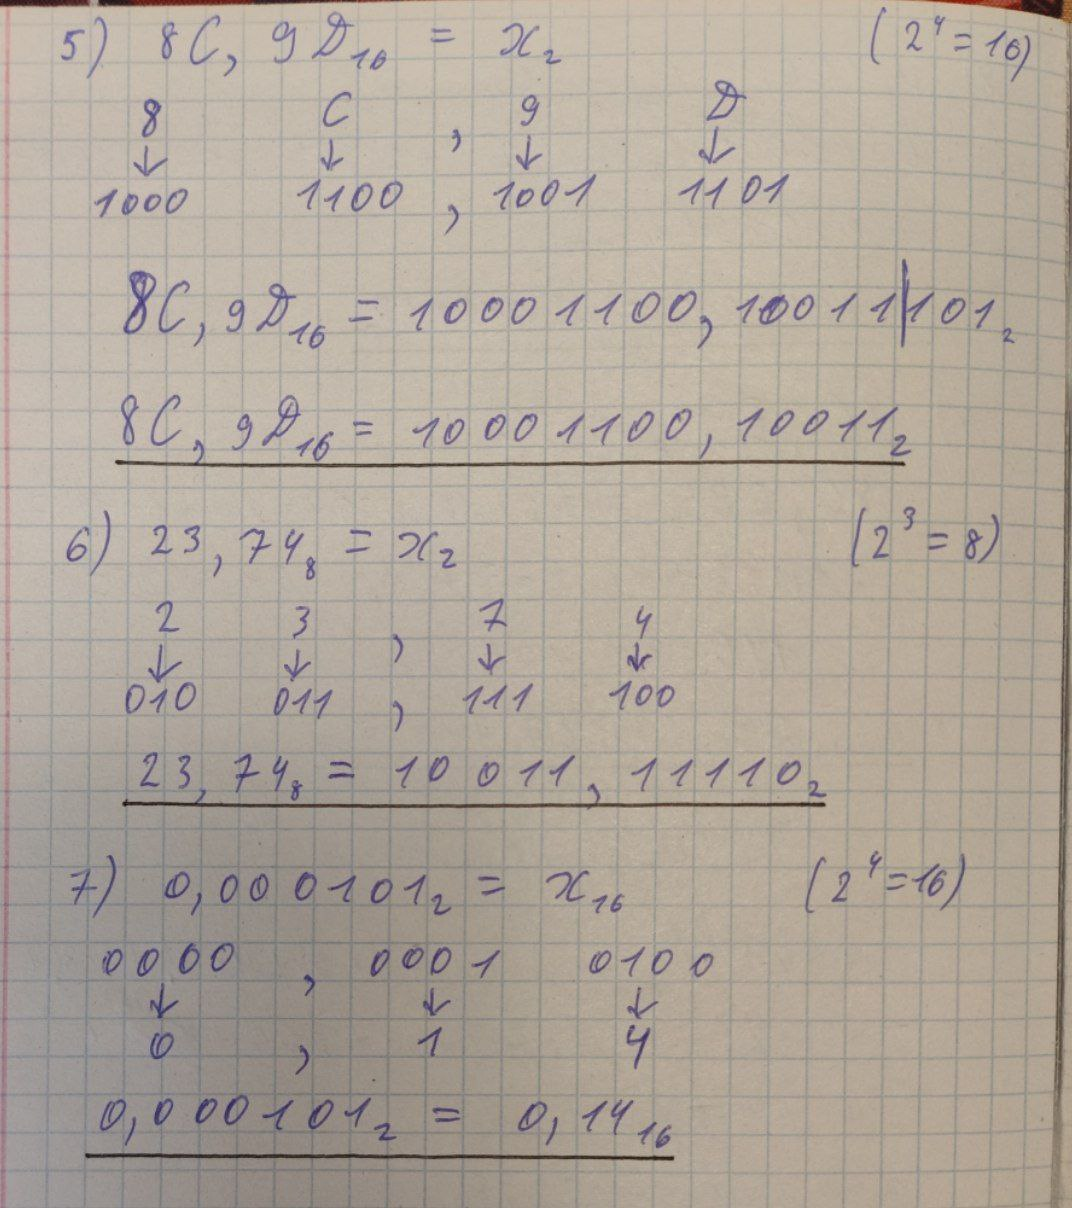 5) 8C, 9D₁₆ = x₂ (2⁴ = 16)
8 C , 9 D
↓ ↓ ↓ ↓
1000 1100 , 1001 1101
8C, 9D₁₆ = 10001100, 10011|101₂
8C, 9D₁₆ = 10001100, 10011₂
6) 23, 74₈ = x₂ (2³ = 8)
2 3 , 7 4
↓ ↓ ↓ ↓
010 011 , 111 100
23, 74₈ = 10 011, 11110₂
7) 0,000101₂ = x₁₆ (2⁴ = 16)
0000 , 0001 0100
↓ ↓ ↓
0 , 1 4
0,000101₂ = 0,14₁₆